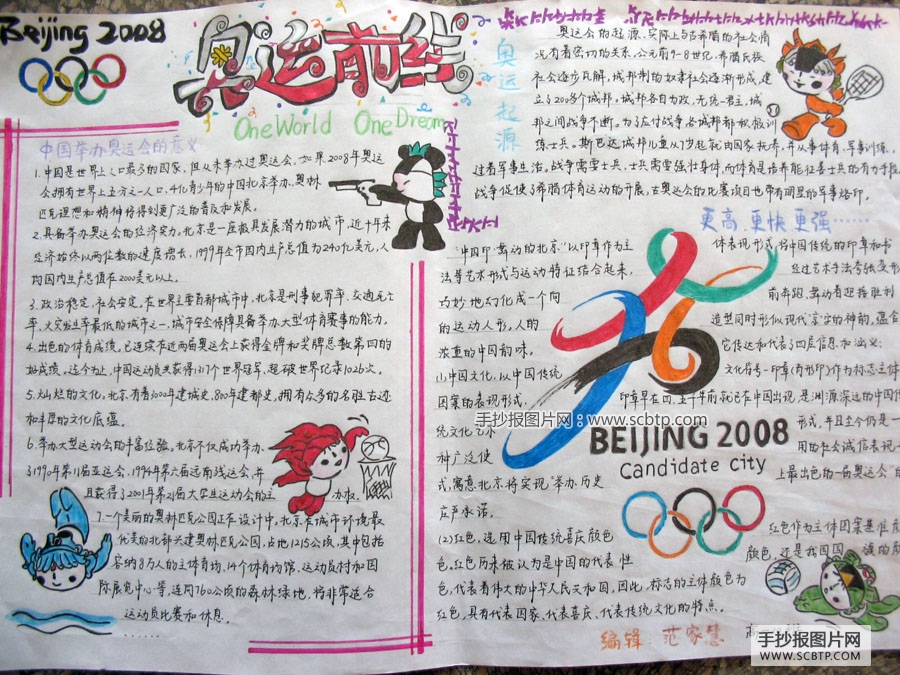 Beijing 2008
奥运前线
One World One Dream
中国举办奥运会的意义
1.中国是世界上人口最多的国家,但从未举办过奥运会,如果2008年奥运
会拥有世界上五分之一人口、4亿青少年的中国北京举办,奥林
匹克理想和精神将得到更广泛的普及和发展。
2.具备举办奥运会的经济实力,北京是一座极具发展潜力的城市,近十年来
经济始终以两位数的速度增长,1999年全市国内生产总值为240亿美元,人
均国内生产总值在2000美元以上。
3.政治稳定,社会安定,在世界主要首都城市中,北京是刑事犯罪率、交通死亡
率、火灾发生率最低的城市之一,城市安全保障具备举办大型体育赛事的能力。
4.出色的体育成绩,已连续在近两届奥运会上获得金牌和奖牌总数第四的
好成绩。迄今为止,中国运动员共获得1317个世界冠军,超破世界纪录1026次。
5.灿烂的文化,北京有着3000年建城史,800年建都史,拥有众多的名胜古迹
和丰厚的文化底蕴。
6.举办大型运动会的丰富经验,北京不仅成功举办
了1990年第11届亚运会、1994年第六届远南残运会,并
且获得了2001年第21届大学生运动会的主办权。
7.一个美丽的奥林匹克公园正在设计中,北京在城市环境最
优美的北部兴建奥林匹克公园,占地1215公顷,其中包括
容纳8万人的主体育场、14个体育场馆、运动员村和国
际展览中心等,连同760公顷的森林绿地,将非常适合
运动员比赛和休息。
……
奥运起源
奥运会的起源,实际上与古希腊的社会情
况有着密切的关系,公元前9-8世纪,希腊氏族
社会逐步瓦解,城邦制的奴隶社会逐渐形成,建
立了200多个城邦。城邦各自为政,无统一君主,城
邦之间战争不断。为了应付战争,各城邦都积极训
练士兵。斯巴达城邦儿童从7岁起就由国家抚养,并从事体育、军事训练,
过着军事生活。战争需要士兵,士兵需要强壮身体,而体育是培养能征善士兵的有力手段。
战争促使了希腊体育运动的开展,古奥运会的比赛项目也带有明显的军事烙印。
更高 更快 更强……
"中国印·舞动的北京"以印章作为主
法等艺术形式与运动特征结合起来,
巧妙地幻化成一个向
的运动人形,人的
浓重的中国韵味。
(1)中国文化,以中国传统
图案的表现形式,
统文化艺术
神广泛使
式,寓意北京将实现"举办历史
庄严承诺。
(2)红色,选用中国传统喜庆颜色
色。红色历来被认为是中国的代表性
色,代表着伟大的中华人民共和国,因此,标志的主体颜色为
红色,具有代表国家、代表喜庆、代表传统文化的特点。
体表现形式,将中国传统的印章和书
经过艺术手法夸张变形
前奔跑、舞动着迎接胜利
造型同时形似现代"京"字的神韵,蕴含
它传达和代表了四层信息和涵义:
文化符号—印章(肖形印)作为标志主体
印章早在四、五千年前就已在中国出现,是渊源深远的中国传
形式,并且至今仍是一
用的社会诚信表现
上最出色的一届奥运会"的
红色作为主体图案基准颜
颜色,还是我国国 旗的颜
BEIJING 2008
Candidate city
编辑:范家慧
手抄报图片网:www.scbtp.com
手抄报图片网
WWW.SCBTP.COM